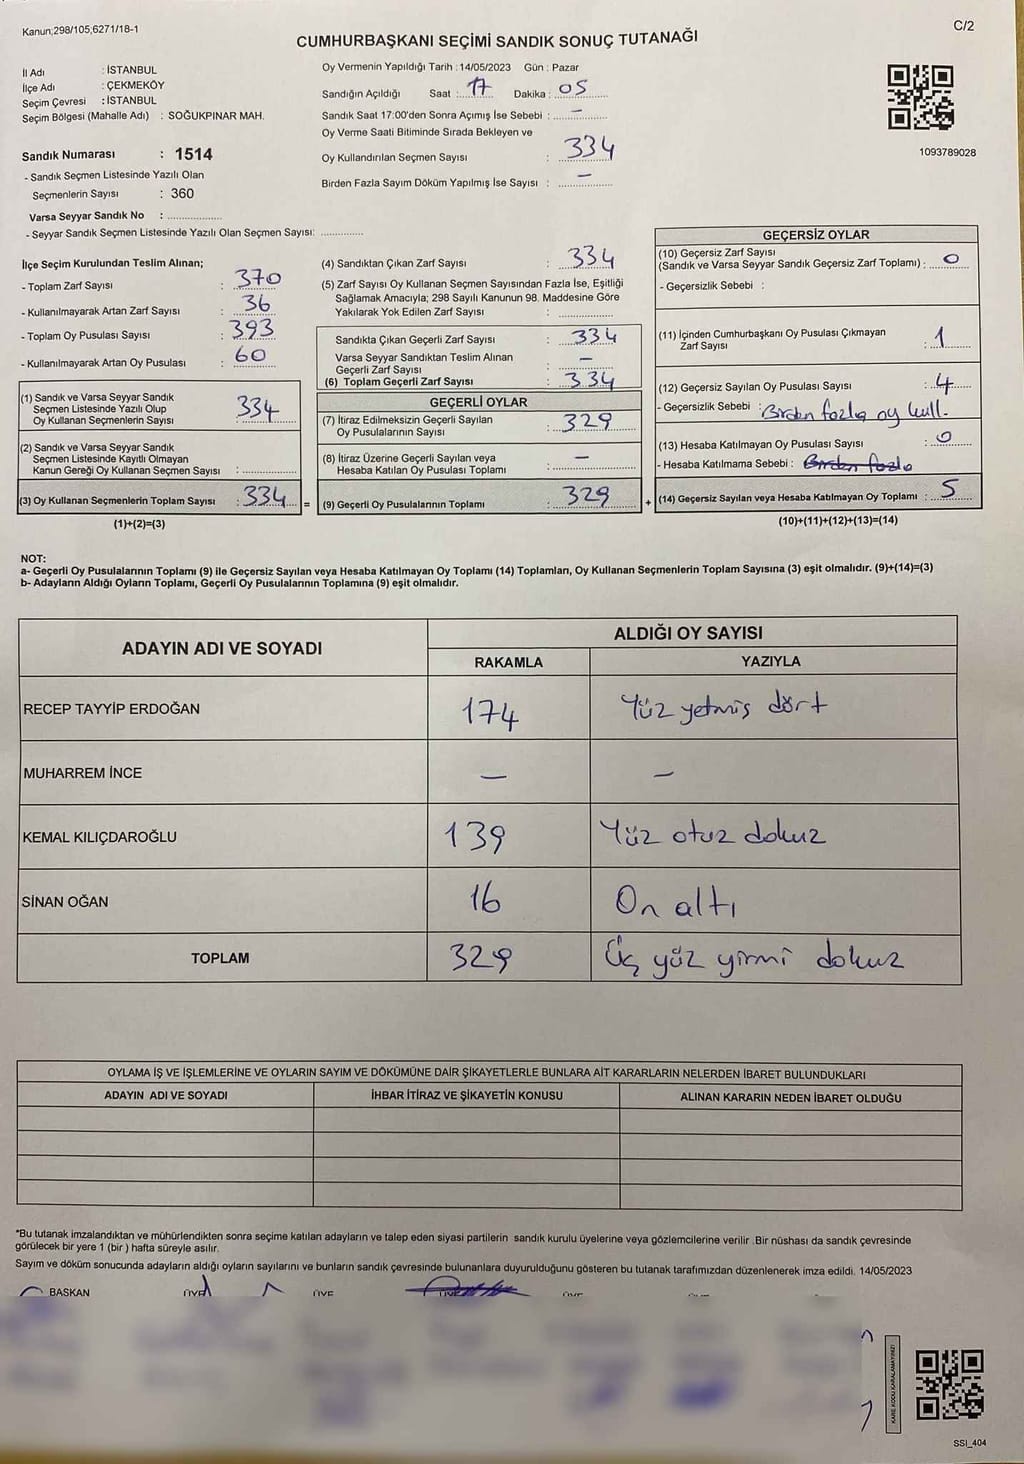 Kanun;298/105,6271/18-1
C/2
CUMHURBAŞKANI SEÇİMİ SANDIK SONUÇ TUTANAĞI
İl Adı : İSTANBUL
İlçe Adı : ÇEKMEKÖY
Seçim Çevresi : İSTANBUL
Seçim Bölgesi (Mahalle Adı) : SOĞUKPINAR MAH.
Sandık Numarası : 1514
- Sandık Seçmen Listesinde Yazılı Olan
Seçmenlerin Sayısı : 360
Varsa Seyyar Sandık No : ..................
- Seyyar Sandık Seçmen Listesinde Yazılı Olan Seçmen Sayısı: ..............
Oy Vermenin Yapıldığı Tarih : 14/05/2023 Gün : Pazar
Sandığın Açıldığı Saat : 17 Dakika : 05
Sandık Saat 17:00'den Sonra Açımış İse Sebebi : -
Oy Verme Saati Bitiminde Sırada Bekleyen ve
Oy Kullandırılan Seçmen Sayısı : 334
Birden Fazla Sayım Döküm Yapılmış İse Sayısı : -
1093789028
İlçe Seçim Kurulundan Teslim Alınan;
- Toplam Zarf Sayısı : 370
- Kullanılmayarak Artan Zarf Sayısı : 36
- Toplam Oy Pusulası Sayısı : 393
- Kullanılmayarak Artan Oy Pusulası : 60
(1) Sandık ve Varsa Seyyar Sandık
Seçmen Listesinde Yazılı Olup
Oy Kullanan Seçmenlerin Sayısı : 334
(2) Sandık ve Varsa Seyyar Sandık
Seçmen Listesinde Kayıtlı Olmayan
Kanun Gereği Oy Kullanan Seçmen Sayısı : ..................
(3) Oy Kullanan Seçmenlerin Toplam Sayısı : 334 =
(1)+(2)=(3)
(4) Sandıktan Çıkan Zarf Sayısı : 334
(5) Zarf Sayısı Oy Kullanan Seçmen Sayısından Fazla İse, Eşitliği
Sağlamak Amacıyla; 298 Sayılı Kanunun 98. Maddesine Göre
Yakılarak Yok Edilen Zarf Sayısı : ..................
Sandıkta Çıkan Geçerli Zarf Sayısı : 334
Varsa Seyyar Sandıktan Teslim Alınan
Geçerli Zarf Sayısı : -
(6) Toplam Geçerli Zarf Sayısı : 334
GEÇERLİ OYLAR
(7) İtiraz Edilmeksizin Geçerli Sayılan
Oy Pusulalarının Sayısı : 329
(8) İtiraz Üzerine Geçerli Sayılan veya
Hesaba Katılan Oy Pusulası Toplamı : -
(9) Geçerli Oy Pusulalarının Toplamı : 329 +
GEÇERSİZ OYLAR
(10) Geçersiz Zarf Sayısı
(Sandık ve Varsa Seyyar Sandık Geçersiz Zarf Toplamı) : 0
- Geçersizlik Sebebi :
(11) İçinden Cumhurbaşkanı Oy Pusulası Çıkmayan
Zarf Sayısı : 1
(12) Geçersiz Sayılan Oy Pusulası Sayısı : 4
- Geçersizlik Sebebi : Birden fazla oy kull.
(13) Hesaba Katılmayan Oy Pusulası Sayısı : 0
- Hesaba Katılmama Sebebi : Birden fazla
(14) Geçersiz Sayılan veya Hesaba Katılmayan Oy Toplamı : 5
(10)+(11)+(12)+(13)=(14)
NOT:
a- Geçerli Oy Pusulalarının Toplamı (9) ile Geçersiz Sayılan veya Hesaba Katılmayan Oy Toplamı (14) Toplamları, Oy Kullanan Seçmenlerin Toplam Sayısına (3) eşit olmalıdır. (9)+(14)=(3)
b- Adayların Aldığı Oyların Toplamı, Geçerli Oy Pusulalarının Toplamına (9) eşit olmalıdır.
ADAYIN ADI VE SOYADI ALDIĞI OY SAYISI
RAKAMLA YAZIYLA
RECEP TAYYİP ERDOĞAN 174 Yüz yetmiş dört
MUHARREM İNCE - -
KEMAL KILIÇDAROĞLU 139 Yüz otuz dokuz
SİNAN OĞAN 16 On altı
TOPLAM 329 Üç yüz yirmi dokuz
OYLAMA İŞ VE İŞLEMLERİNE VE OYLARIN SAYIM VE DÖKÜMÜNE DAİR ŞİKAYETLERLE BUNLARA AİT KARARLARIN NELERDEN İBARET BULUNDUKLARI
ADAYIN ADI VE SOYADI İHBAR İTİRAZ VE ŞİKAYETİN KONUSU ALINAN KARARIN NEDEN İBARET OLDUĞU
*Bu tutanak imzalandıktan ve mühürlendikten sonra seçime katılan adayların ve talep eden siyasi partilerin sandık kurulu üyelerine veya gözlemcilerine verilir .Bir nüshası da sandık çevresinde
görülecek bir yere 1 (bir ) hafta süreyle asılır.
Sayım ve döküm sonucunda adayların aldığı oyların sayılarını ve bunların sandık çevresinde bulunanlara duyurulduğunu gösteren bu tutanak tarafımızdan düzenlenerek imza edildi. 14/05/2023
BAŞKAN ÜYE ÜYE ÜYE
KARE KODU KARALAMAYINIZ!
SSI_404